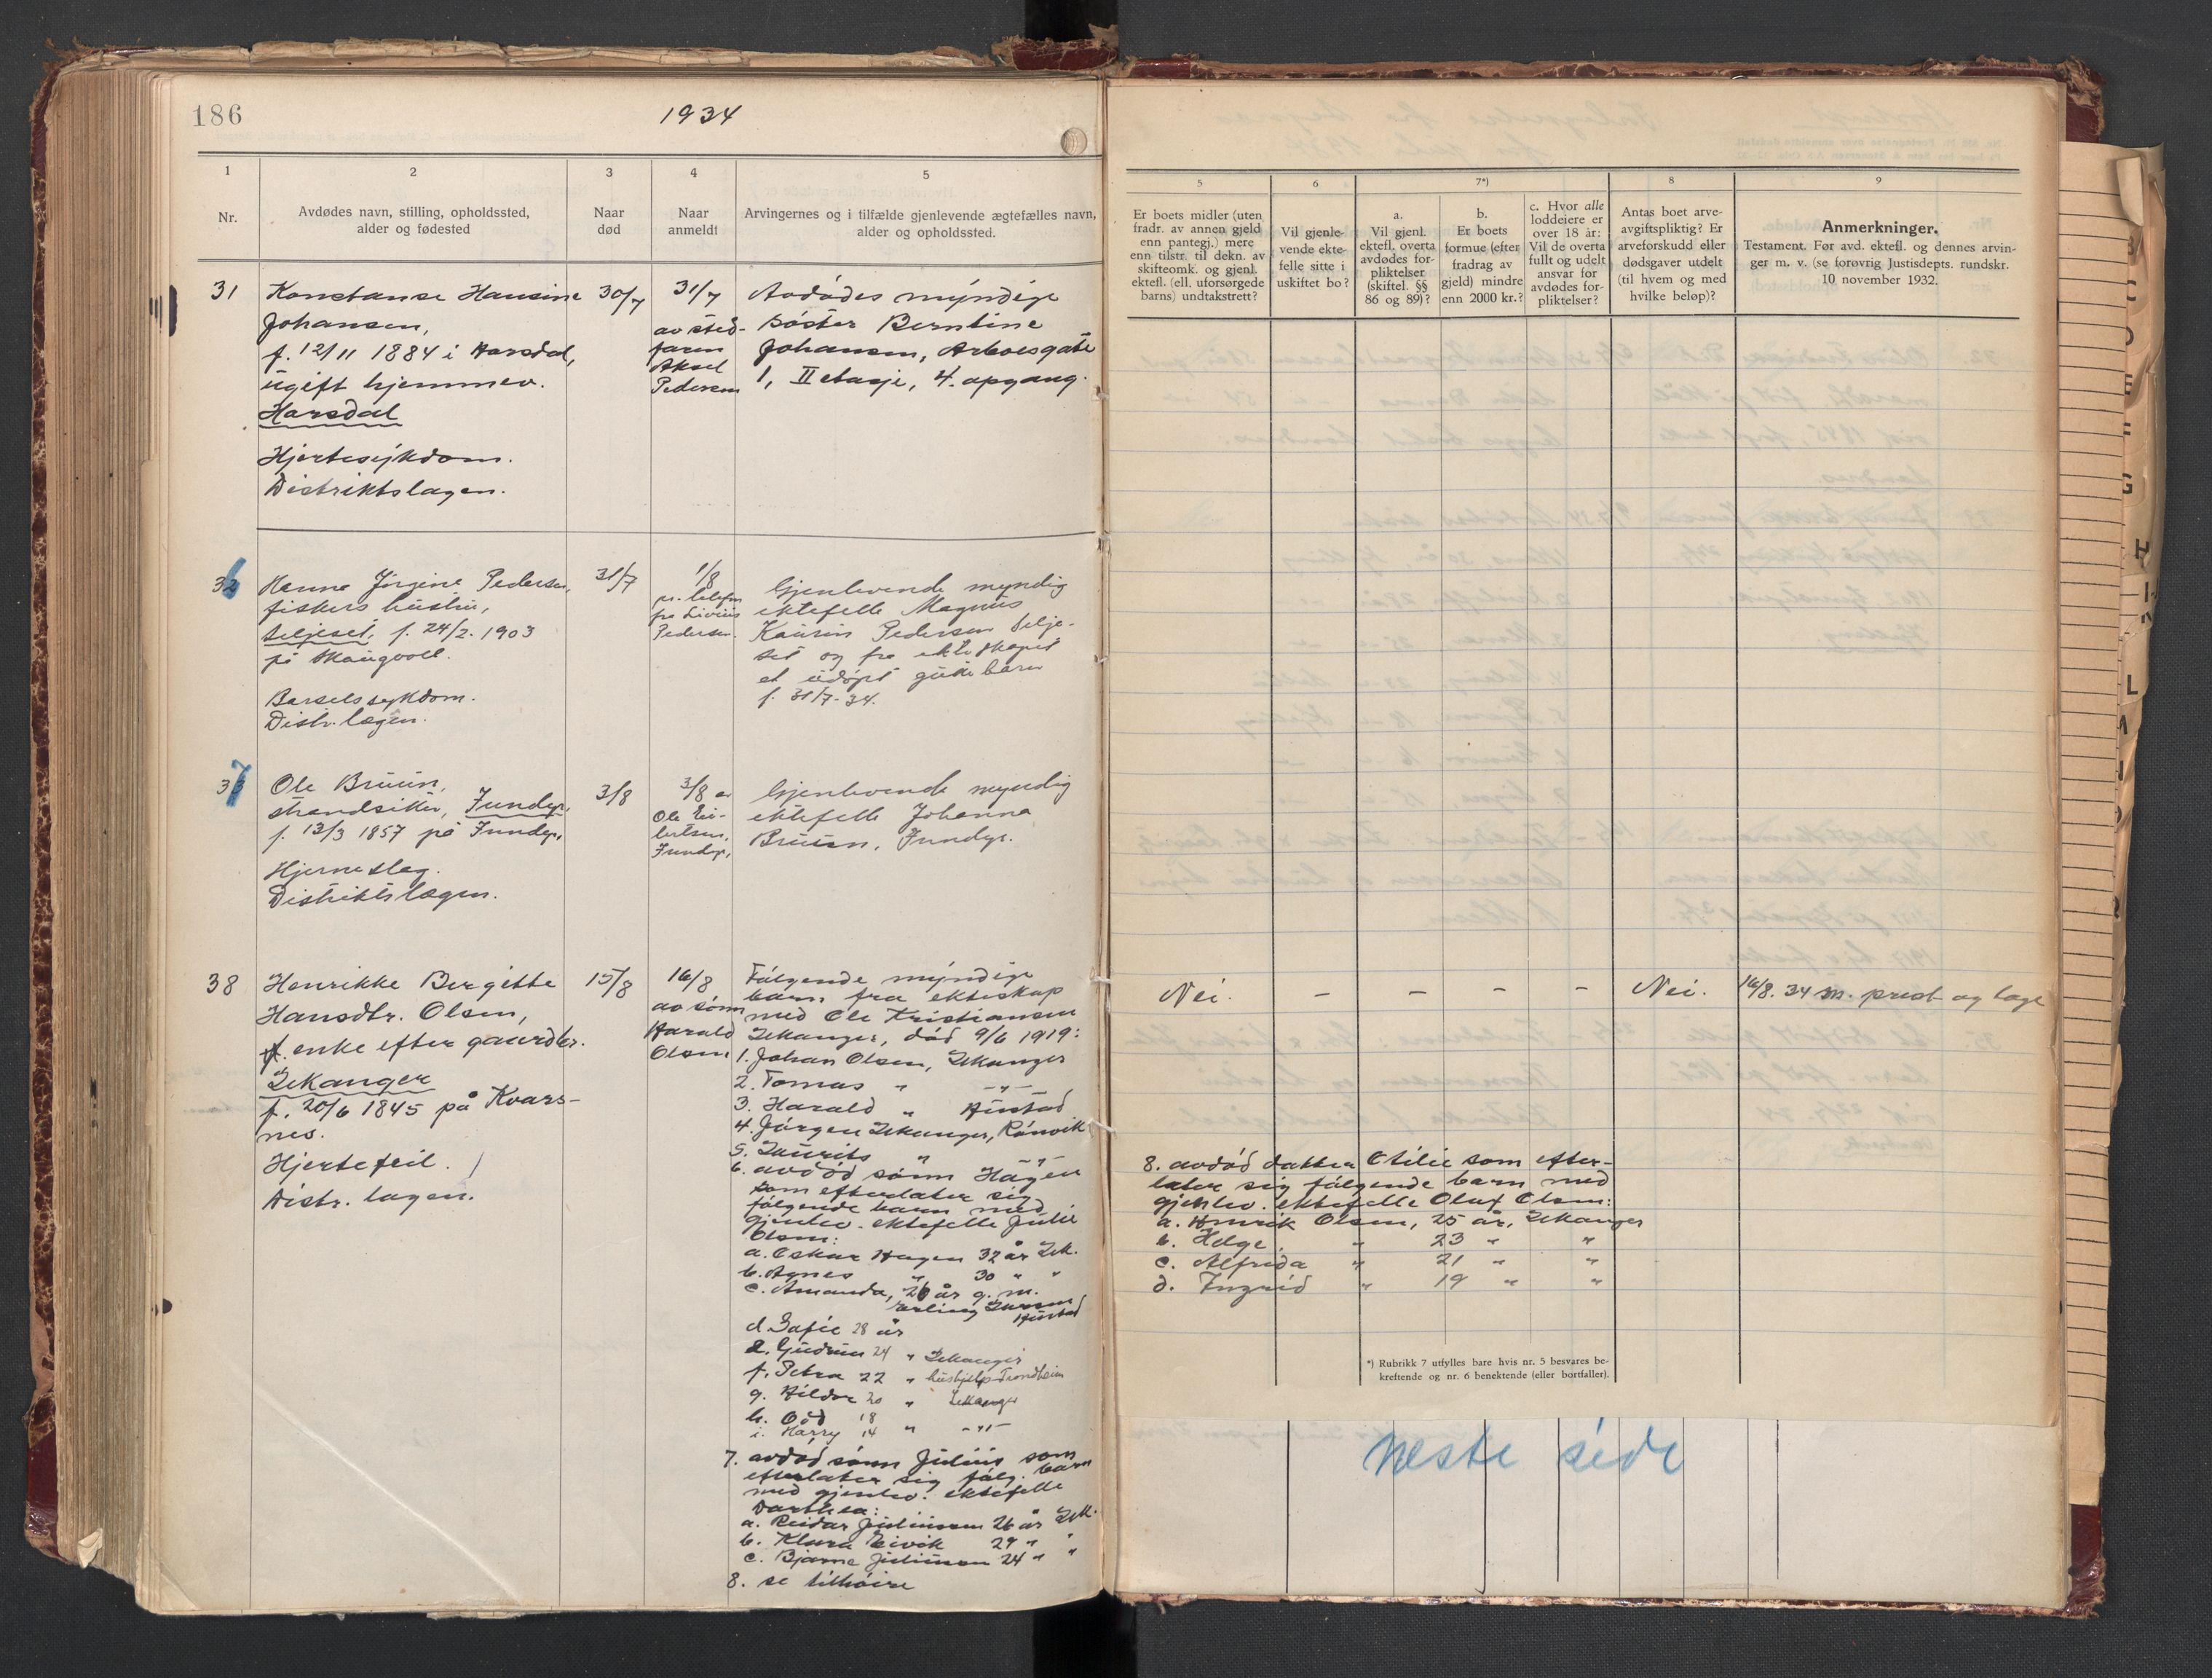 186
1934
1
2
3
4
5
Nr.
Avdødes navn, stilling, opholdssted,
alder og fødested
Naar
død
Naar
anmeldt
Arvingernes og i tilfælde gjenlevende ægtefælles navn,
alder og opholdssted.
31
Konstanse Hansine
Johansen,
f. 12/11 1884 i Harsdal,
ugift hjemmev.
Harsdal
Hjertesykdom.
Distriktslægen.
30/7
31/7
av sted-
faren
Aksel
Pedersen
Avdødes myndige
søster Berntine
Johansen, Arboesgate
1, II etasje, 4. opgang.
32
Hanna Jørgine Pedersen,
fiskers hustru,
Seljeset, f. 24/2. 1903
på Skaugvoll.
Barselssykdom.
Distr. lægen.
31/7
1/8
pr. telefon
fra Livius
Pedersen.
Gjenlevende myndig
ektefelle Magnus
Kaurin Pedersen Selje-
set og fra ekteskapet
et udøpt gutebarn
f. 31/7-34.
37
Ole Bruun,
strandsitter, Fundyr,
f. 13/3 1857 på Fundyr,
Hjerneslag.
Distriktslægen.
3/8
3/8 av
Ole Ei-
lertsen,
Fundyr,
Gjenlevende myndig
ektefelle Johanna
Bruun, Fundyr.
38
Henrikke Bergitte
Hansdtr. Olsen,
enke efter gaardbr.
Lekanger
f. 20/6 1845 på Kvars-
nes.
Hjertefeil.
Distr. lægen.
15/8
16/8
av sønn
Harald
Olsen
Følgende myndige
barn fra ekteskap
med Ole Kristiansen
Lekanger, død 9/6 1919:
1. Johan Olsen, Lekanger
2. Tomas " -"-
3. Harald " Hustad
4. Jørgen Lekanger, Rønvik
5. Laurits " -"-
6. avdød sønn Hagen
som efterlater sig
følgende barn med
gjenlev. ektefelle Julie
Olsen:
a. Oskar Hagen 32 år Lek.
b. Agnes " 30 " "
c. Amanda, 26 år g. m.
Erling Larsen
Hustad
d. Sofie 28 år
e. Gudrun 24 " Lekanger
f. Petra 22 " hushjelp Trondheim
g. Hildur 20 " Lekanger
h. Odd 18
i. Harry 14 " -"-
7. avdød sønn Julius som
efterlater sig følg. barn
med gjenlev. ektefelle
Dorthea:
a. Reidar Juliussen 26 år Lek.
b. Klara Eivik 29 " "
c. Bjarne Juliussen 24 " "
8. se tilhøire
5
6
7*)
8
9
Er boets midler (uten
fradr. av annen gjeld
enn pantegj.) mere
enn tilstr. til dekn. av
skifteomk. og gjenl.
ektefl. (ell. uforsørgede
barns) undtakstrett?
Vil gjenle-
vende ekte-
felle sitte i
uskiftet bo?
a.
Vil gjenl.
ektefl. overta
avdødes for-
pliktelser
(skiftel. §§
86 og 89)?
b.
Er boets
formue (efter
fradrag av
gjeld) mindre
enn 2000 kr.?
c. Hvor alle
loddeiere er
over 18 år:
Vil de overta
fullt og udelt
ansvar for
avdødes for-
pliktelser?
Antas boet arve-
avgiftspliktig? Er
arveforskudd eller
dødsgaver utdelt
(til hvem og med
hvilke beløp)?
Anmerkninger.
Testament. Før avd. ektefl. og dennes arvin-
ger m. v. (se forøvrig Justisdepts. rundskr.
10 november 1932.
Nei. - - - - Nei. 16/8. 34 m. prest og læge
8. avdød datter Otilie som efter-
later sig følgende barn med
gjenlev. ektefelle Oluf Olsen:
a. Henrik Olsen, 25 år, Lekanger
b. Helge " 23 " "
c. Alfrida " 21 " "
d. Ingrid " 19 " "
*) Rubrikk 7 utfylles bare hvis nr. 5 besvares be-
kreftende og nr. 6 benektende (eller bortfaller).
Neste side